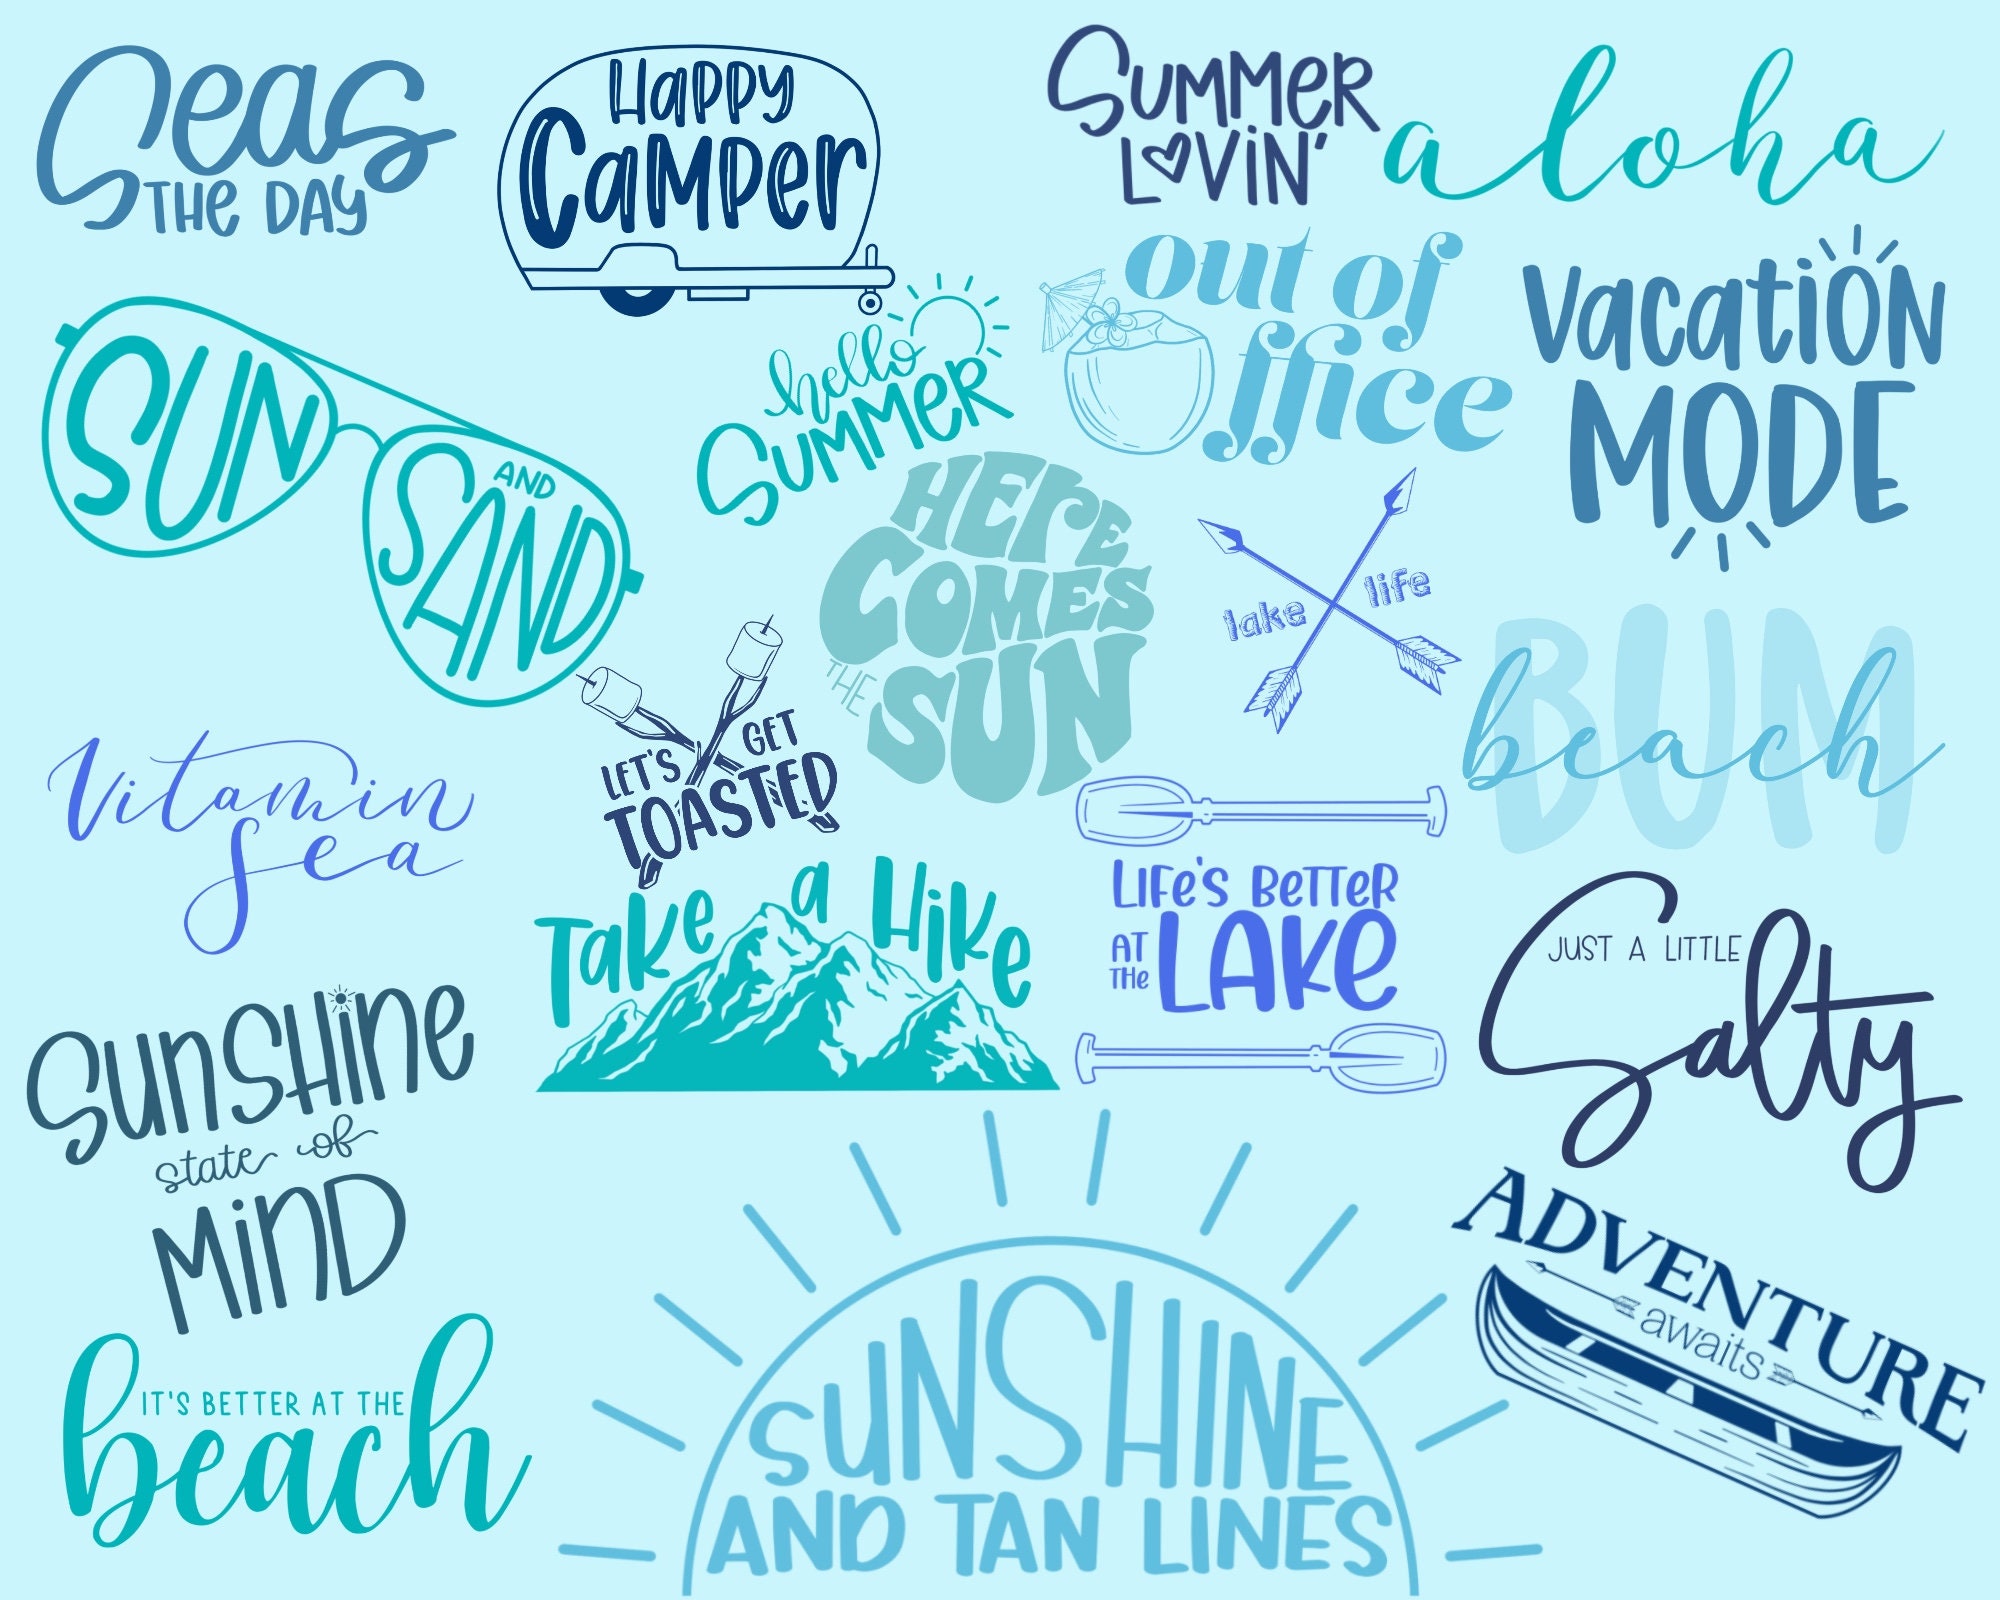 Seas
THE DAY
Happy
Camper
SUMMER
LOVIN'
aloha
out of
office
Vacation
MODE
SUN
AND
SAND
hello
SUMMER
HERE
COMES
THE
SUN
lake
life
BUM
beach
Vitamin
Sea
LET'S
GET
TOASTED
Take a Hike
LIFE'S BETTER
AT
THE
LAKE
JUST A LITTLE
Salty
Sunshine
state of
MIND
IT'S BETTER AT THE
beach
SUNSHINE
AND TAN LINES
ADVENTURE
awaits